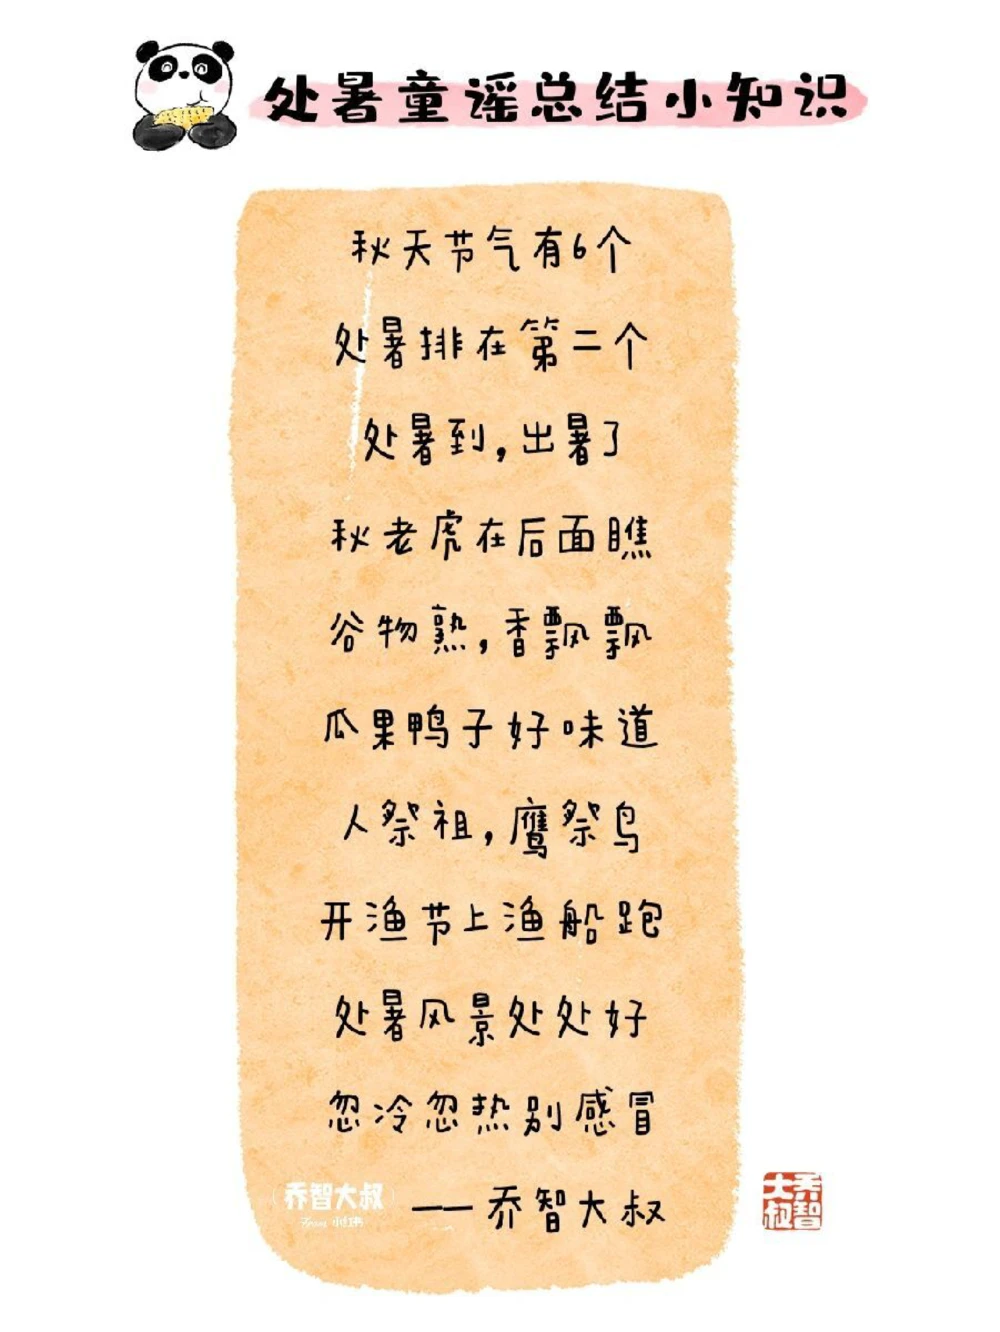 处暑童谣总结小知识
秋天节气有6个
处暑排在第二个
处暑到，出暑了
秋老虎在后面瞧
谷物熟，香飘飘
瓜果鸭子好味道
人祭祖，鹰祭鸟
开渔节上渔船跑
处暑风景处处好
忽冷忽热别感冒
乔智大叔
——乔智大叔
乔智大叔